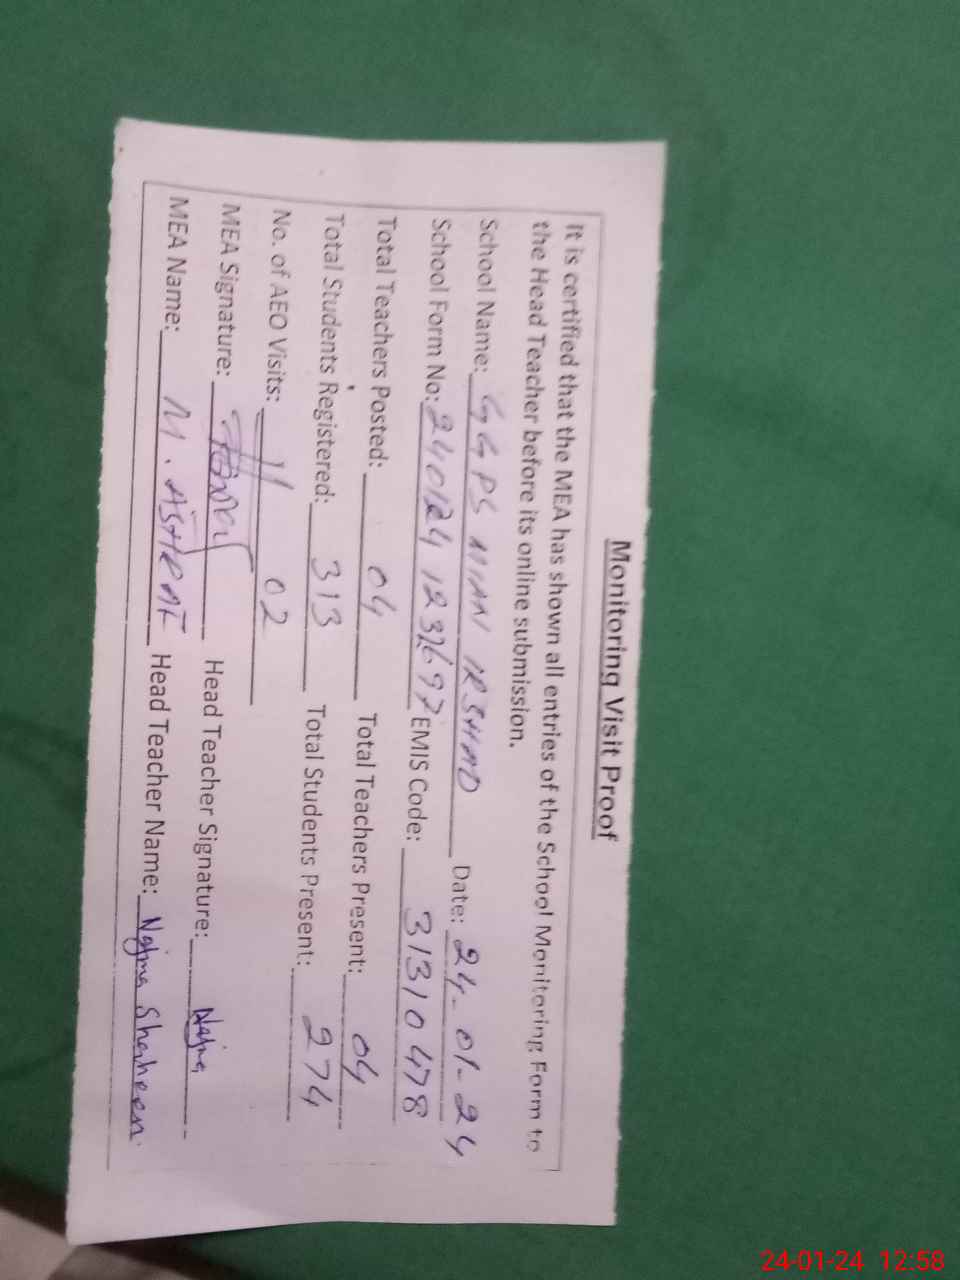 Monitoring Visit Proof
It is certified that the MEA has shown all entries of the School Monitoring Form to
the Head Teacher before its online submission.
School Name: GGPS MIAN IRSHAD Date: 24-01-24
School Form No: 240124123697 EMIS Code: 31310478
Total Teachers Posted: 04 Total Teachers Present: 04
Total Students Registered: 313 Total Students Present: 274
No. of AEO Visits: 02
MEA Signature: Head Teacher Signature: Najma
MEA Name: M. ASHRAF Head Teacher Name: Najma Shaheen
24-01-24 12:58